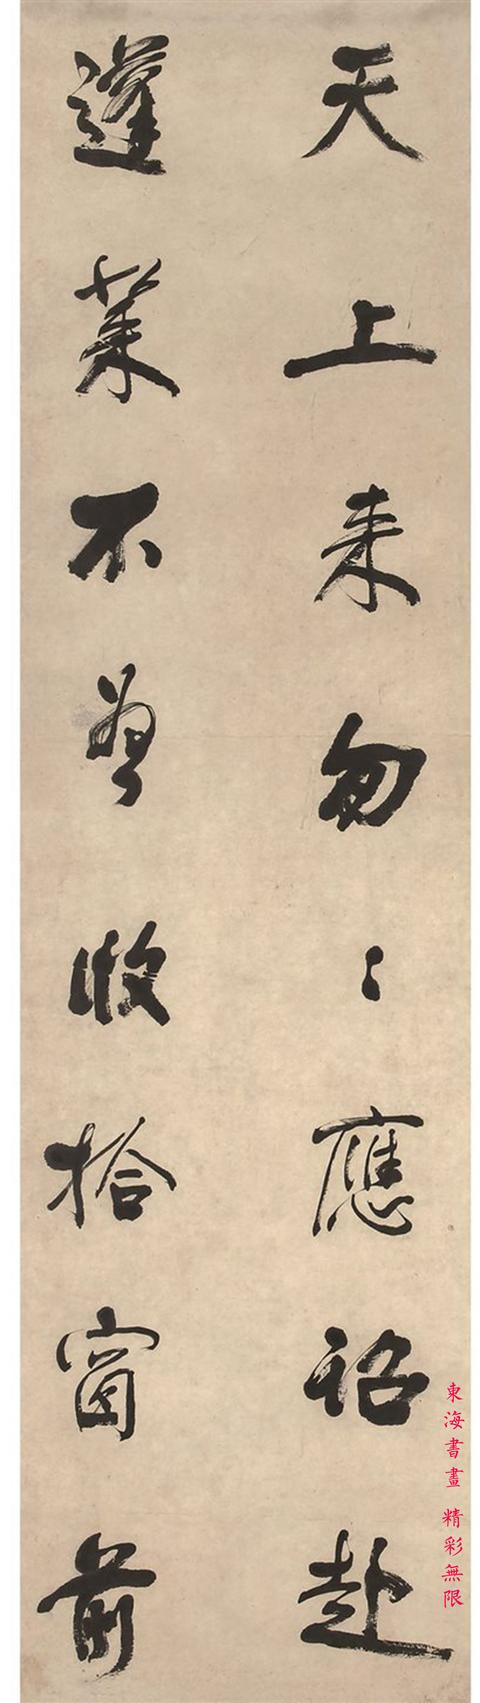 天上来匆〻應詔赴
蓬莱不曾收拾窗前
東海書畫 精彩無限